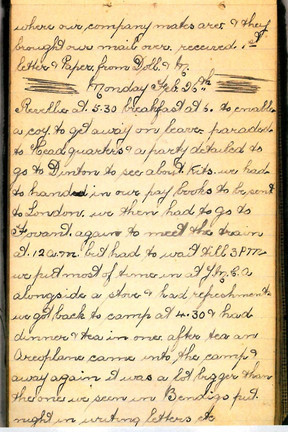 where our company mates are. & they
brought our mail over. received 1st
letter & Paper from Doll. &
Monday Feb 26th
Reveille at 5.30 breakfast at 6. to enable
a coy. to get away on leave. paraded
to Head quarters & a party detailed to
go to Dinton to see about Kits. we had
to hand in our pay books to be sent
to London. we then had to go to
Fovant again to meet the train
at 12 a.m. but had to wait till 3 P.M.
we put most of time in at Y.M.C.A
alongside a stove & had refreshments
we got back to camp at 4.30 & had
dinner & tea in one. after tea an
Aeroplane came into the camp &
away again it was a lot bigger than
the one we seen in Bendigo put
night in writing letters etc